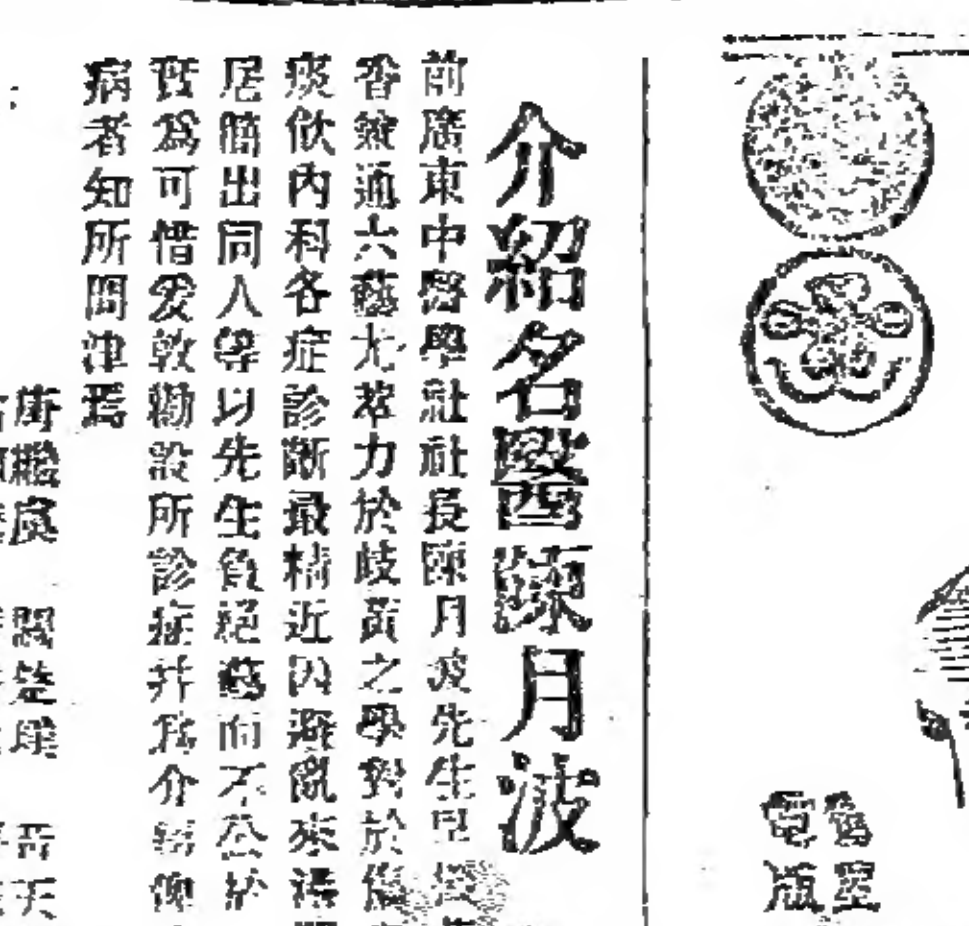 電版
介紹名醫陳月波
前廣東中醫學社社長陳月波先生
香兼通六藝尤萃力於岐黃之學對於傷
痰飲內科各症診斷最精近因避亂來港
居簡出同人等以先生負絕藝而不公於
實爲可惜爰敦勸設所診症幷爲介紹俾
病者知所問津焉
唐繼虞 關楚璞 天